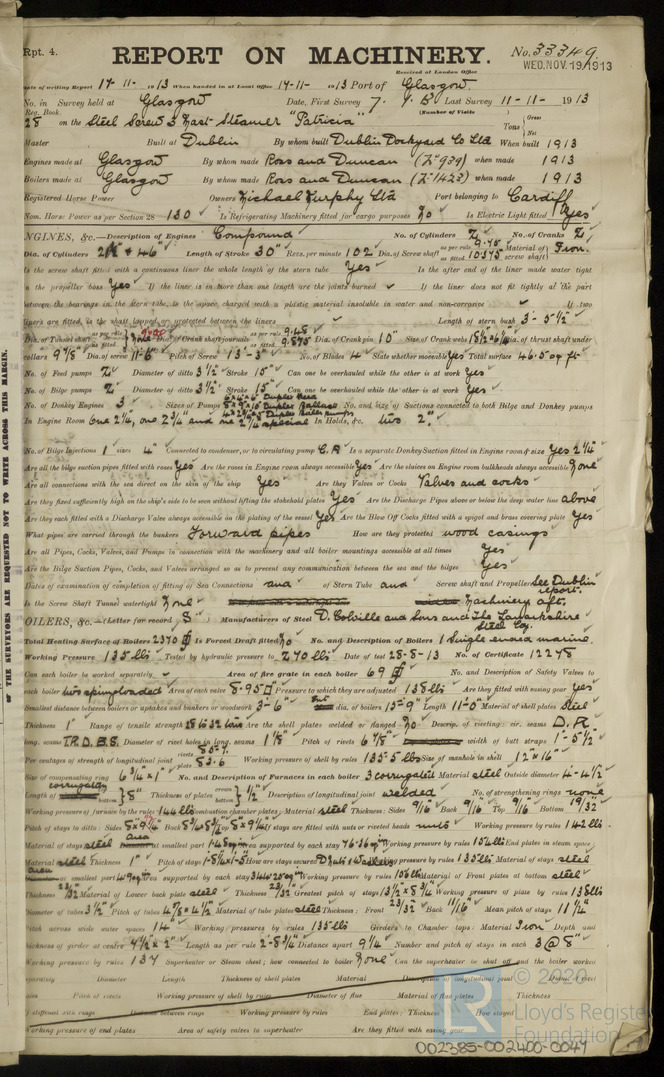 Rpt. 4.
REPORT ON MACHINERY.
No. 33349
WED. NOV. 19 1913
Received at London Office
Date of writing Report 17-11-1913 When handed in at Local Office 17-11-1913 Port of Glasgow
No. in Survey held at Glasgow Date, First Survey 7. Last Survey 11-11-1913
Reg. Book. (Number of Visits
28 on the Steel Screw 3 Mast Steamer "Patricia" Tons Gross Net
Master Built at Dublin By whom built Dublin Dockyard Co Ltd When built 1913
Engines made at Glasgow By whom made Ross and Duncan (No 939) when made 1913
Boilers made at Glasgow By whom made Ross and Duncan (No 1423) when made 1913
Registered Horse Power Owners Michael Murphy Ltd Port belonging to Cardiff
Nom. Horse Power as per Section 28 130 Is Refrigerating Machinery fitted for cargo purposes No Is Electric Light fitted Yes
ENGINES, &c.—Description of Engines Compound No. of Cylinders 2 No. of Cranks 2
Dia. of Cylinders & 46" Length of Stroke 30" Revs. per minute 102 Dia. of Screw shaft as per rule 9.75 as fitted 10.375 Material of screw shaft Iron
Is the screw shaft fitted with a continuous liner the whole length of the stern tube Yes Is the after end of the liner made water tight
in the propeller boss Yes If the liner is in more than one length are the joints burned If the liner does not fit tightly at the part
between the bearings in the stern tube, is the space charged with a plastic material insoluble in water and non-corrosive If two
liners are fitted, is the shaft lapped or protected between the liners Length of stern bush 3'-5½"
Dia. of Tunnel shaft as per rule as fitted None Dia. of Crank shaft journals as per rule 9.48 as fitted 9.875 Dia. of Crank pin 10" Size of Crank webs Dia. of thrust shaft under
collars 9⅞" Dia. of screw 11'-6" Pitch of Screw 13'-3" No. of Blades 4 State whether moveable Yes Total surface 46.5 sq ft
No. of Feed pumps 2 Diameter of ditto 3½" Stroke 15" Can one be overhauled while the other is at work Yes
No. of Bilge pumps 2 Diameter of ditto 3½" Stroke 15" Can one be overhauled while the other is at work Yes
No. of Donkey Engines 3 Sizes of Pumps 6x4x6 Duplex Feed 8x9x10 Duplex Ballast No. and size of Suctions connected to both Bilge and Donkey pumps
In Engine Room one 2¼", one 2¾" and one 2¼" special In Holds, &c. two 2"
No. of Bilge Injections 1 sizes 4" Connected to condenser, or to circulating pump C.P. Is a separate Donkey Suction fitted in Engine room & size Yes 2¼"
Are all the bilge suction pipes fitted with roses Yes Are the roses in Engine room always accessible Yes Are the sluices on Engine room bulkheads always accessible None
Are all connections with the sea direct on the skin of the ship Yes Are they Valves or Cocks Valves and cocks
Are they fixed sufficiently high on the ship's side to be seen without lifting the stokehold plates Yes Are the Discharge Pipes above or below the deep water line above
Are they each fitted with a Discharge Valve always accessible on the plating of the vessel Yes Are the Blow Off Cocks fitted with a spigot and brass covering plate Yes
What pipes are carried through the bunkers Forward pipes How are they protected wood casings
Are all Pipes, Cocks, Valves, and Pumps in connection with the machinery and all boiler mountings accessible at all times Yes
Are the Bilge Suction Pipes, Cocks, and Valves arranged so as to prevent any communication between the sea and the bilges Yes
Dates of examination of completion of fitting of Sea Connections and of Stern Tube and Screw shaft and Propeller See Dublin report.
Is the Screw Shaft Tunnel watertight None Machinery aft.
BOILERS, &c.—(Letter for record S) Manufacturers of Steel D. Colville and Sons and The Lanarkshire Steel Coy.
Total Heating Surface of Boilers 2370 Is Forced Draft fitted No No. and Description of Boilers 1 Single ended marine
Working Pressure 135 lbs Tested by hydraulic pressure to 270 lbs Date of test 28-8-13 No. of Certificate 12278
Can each boiler be worked separately Area of fire grate in each boiler 69 No. and Description of Safety Valves to
each boiler two spring loaded Area of each valve 8.95 Pressure to which they are adjusted 138 lbs Are they fitted with easing gear Yes
Smallest distance between boilers or uptakes and bunkers or woodwork 3'-6" dia. of boilers 15'-9" Length 11'-0" Material of shell plates Steel
Thickness 1" Range of tensile strength 28 to 32 tons Are the shell plates welded or flanged No Descrip. of riveting: cir. seams D.R.
long. seams T.R.D.B.S. Diameter of rivet holes in long. seams 1⅛" Pitch of rivets 6⅞" width of butt straps 1'-5½"
Per centages of strength of longitudinal joint rivets 85.7 plate 83.6 Working pressure of shell by rules 135.5 lbs Size of manhole in shell 12"x16"
Size of compensating ring 6¾"x1" No. and Description of Furnaces in each boiler 3 corrugated Material steel Outside diameter 4'-4½"
Length of corrugations 8" Thickness of plates crown bottom ½" Description of longitudinal joint welded No. of strengthening rings none
Working pressure of furnace by the rules 144 lbs Combustion chamber plates; Material steel Thickness: Sides 9/16" Back 9/16" Top 9/16" Bottom 19/32"
Pitch of stays to ditto: Sides Back Top If stays are fitted with nuts or riveted heads nuts Working pressure by rules 142 lbs
Material of stays steel at smallest part Area supported by each stay Working pressure by rules End plates in steam space:
Material steel Thickness 1" Pitch of stays How are stays secured Working pressure by rules 135 lbs Material of stays steel
at smallest part Area supported by each stay Working pressure by rules Material of Front plates at bottom steel
Thickness 23/32" Material of Lower back plate steel Thickness 23/32" Greatest pitch of stays 13½"x8¾" Working pressure of plate by rules 138 lbs
Diameter of tubes 3½" Pitch of tubes 4⅞"x4½" Material of tube plates steel Thickness: Front 23/32" Back 11/16" Mean pitch of stays 11¼"
Pitch across wide water spaces 14" Working pressures by rules 135 lbs Girders to Chamber tops: Material Iron Depth and
thickness of girder at centre Length as per rule 2'-8¾" Distance apart 9¼" Number and pitch of stays in each 3@8"
Working pressure by rules 137 Superheater or Steam chest; how connected to boiler None Can the superheater be shut off and the boiler worked
separately Diameter Length Thickness of shell plates Material Description of longitudinal joint Diam. of rivet
holes Pitch of rivets Working pressure of shell by rules Diameter of flue Material of flue plates Thickness
If stiffened with rings Distance between rings Working pressure by rules End plates: Thickness How stayed
Working pressure of end plates Area of safety valves to superheater Are they fitted with easing gear
OF THE SURVEYORS ARE REQUESTED NOT TO WRITE ACROSS THIS MARGIN.
© 2020
Lloyd's Register
Foundation
002385-002400-0047